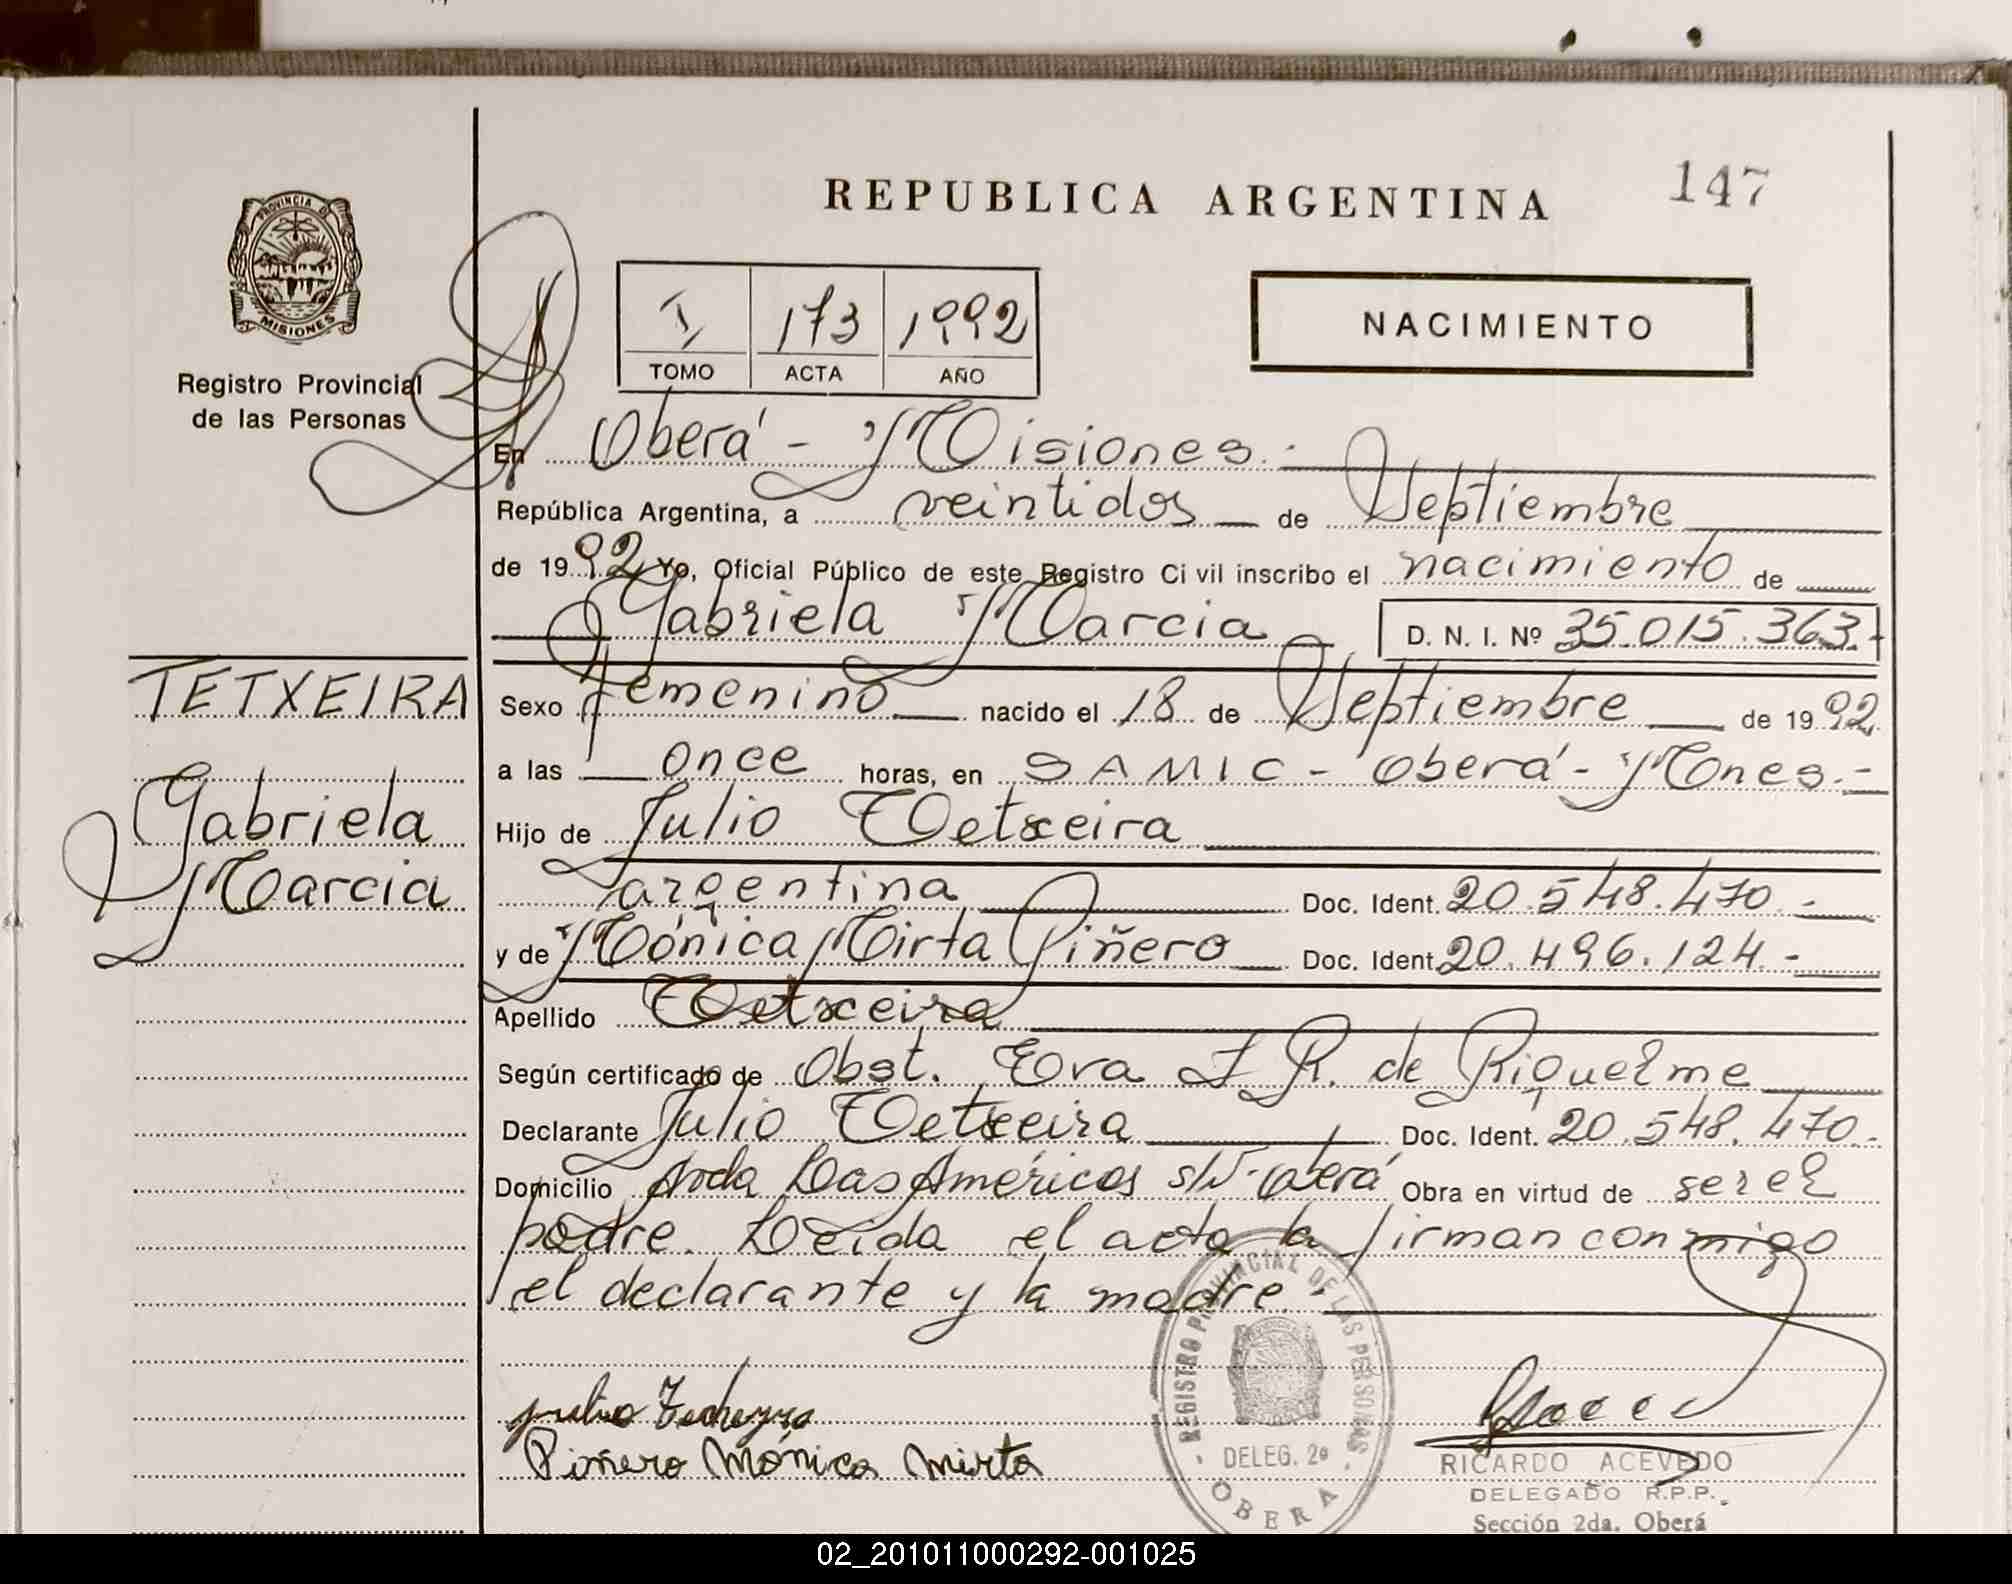 REPUBLICA ARGENTINA
147
PROVINCIA D MISIONES
Registro Provincial
de las Personas
I 173 1992
TOMO ACTA AÑO
NACIMIENTO
En Oberá - Misiones.-
República Argentina, a veintidos de Septiembre
de 1992 Yo, Oficial Público de este Registro Ci vil inscribo el nacimiento de
Gabriela Marcia D. N. I. Nº 35.015.363.-
TETXEIRA
Gabriela
Marcia
Sexo femenino nacido el 18 de Septiembre de 1992
a las once horas, en SAMIC - Oberá - Mnes.-
Hijo de Julio Tetxeira
argentina Doc. Ident. 20.548.470.-
y de Mónica Mirta Piñero Doc. Ident. 20.496.124.-
Apellido Tetxeira
Según certificado de Obst. Eva J R. de Riquelme
Declarante Julio Tetxeira Doc. Ident. 20.548.470.-
Domicilio Avda Las Américas s/N - Oberá Obra en virtud de ser el
padre. Leida el acta la firman conmigo
el declarante y la madre.-
julio
Piñero Mónica Mirta
REGISTRO PROVINCIAL DE LAS PERSONAS
DELEG. 2ª
OBERA
RICARDO ACEVEDO
DELEGADO R.P.P.
Sección 2da. Oberá
02_201011000292-001025